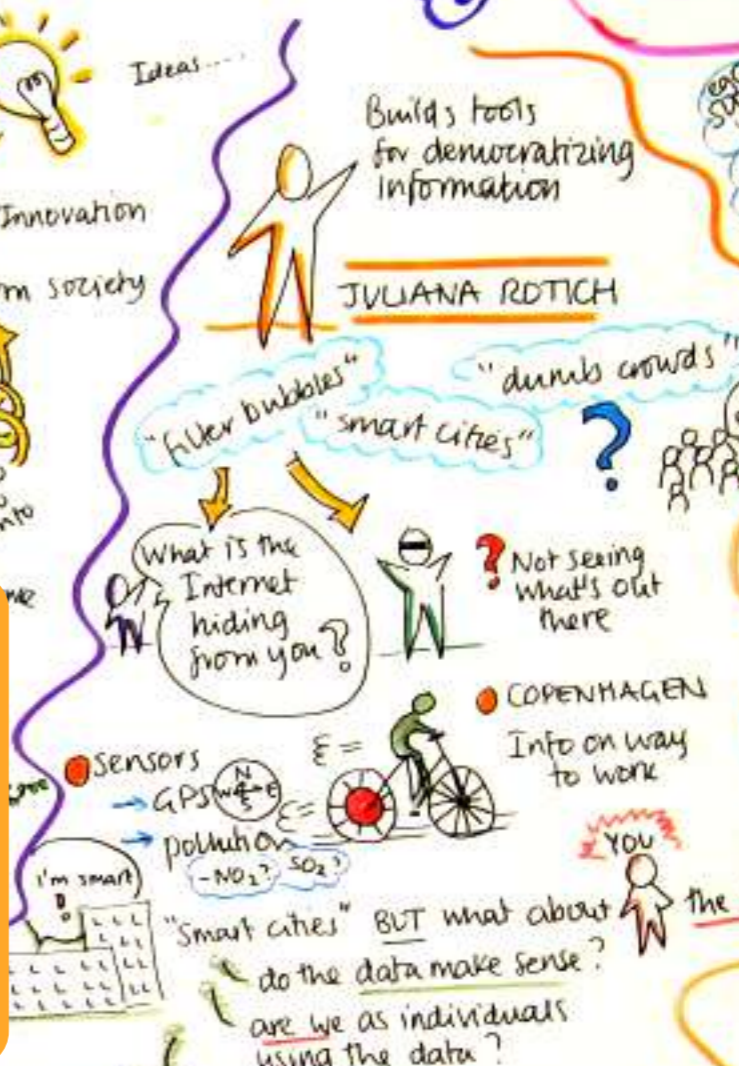 Ideas....
Innovation
society
Builds tools
for democratizing
information
JULIANA ROTICH
"filter bubbles"
"smart cities"
"dumb crowds"
?
What is the
Internet
hiding
from you?
? Not seeing
what's out
there
COPENHAGEN
Info on way
to work
Sensors
→ GPS
N
W E
S
→ pollution
- NO2? SO2?
I'm smart!
YOU
"Smart cities" BUT what about the
do the data make sense?
are we as individuals
using the data?